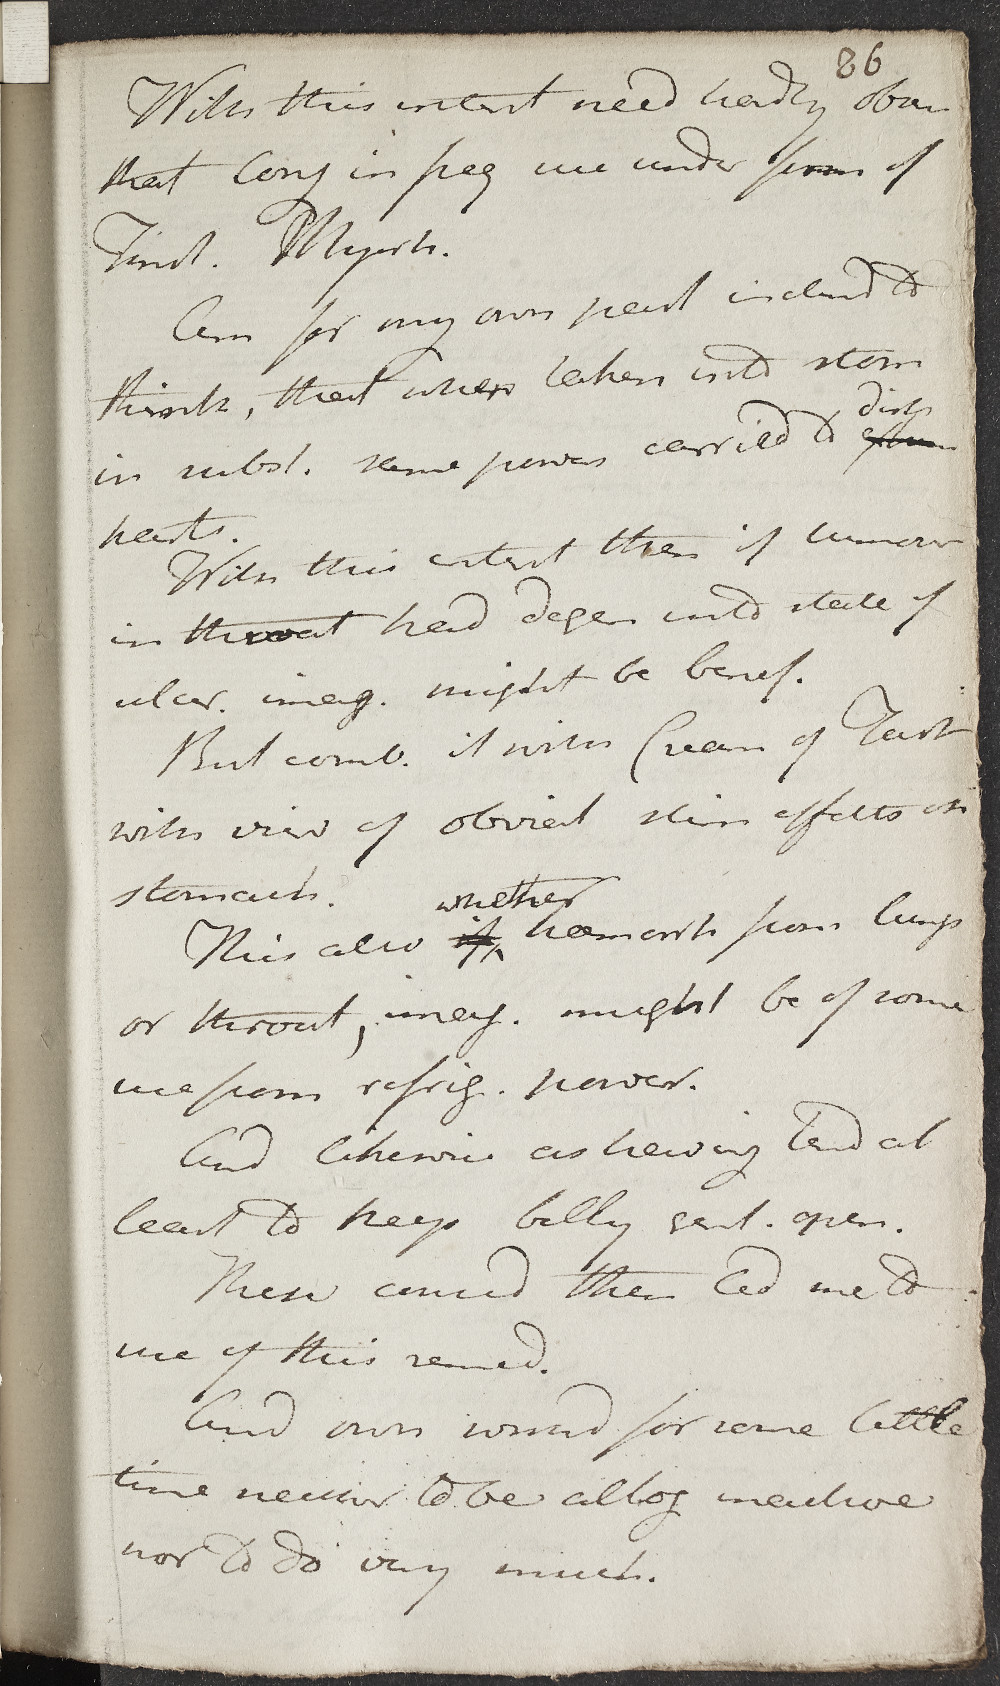 86
With this intent need hardly obser
that cong in freq use under form of
Tinct. Myrrh.
Am for my own part inclind to
think, that when taken into stom
in subst. same power carried to dist
parts.
With this intent then if tumour
in throat had degen into state of
ulcer. imag. might be benef.
But comb. it with Cream of Tart
with view of obviat stim effects on
stomach.
This also if whether haemorrh from lungs
or throat, imag. might be of some
use from refrig. power.
And likewise as having tend at
least to keep belly gent. open.
These consid then led me to
use of this remed.
And own wound for some little
time neither to be altog inactive
nor to do very much.